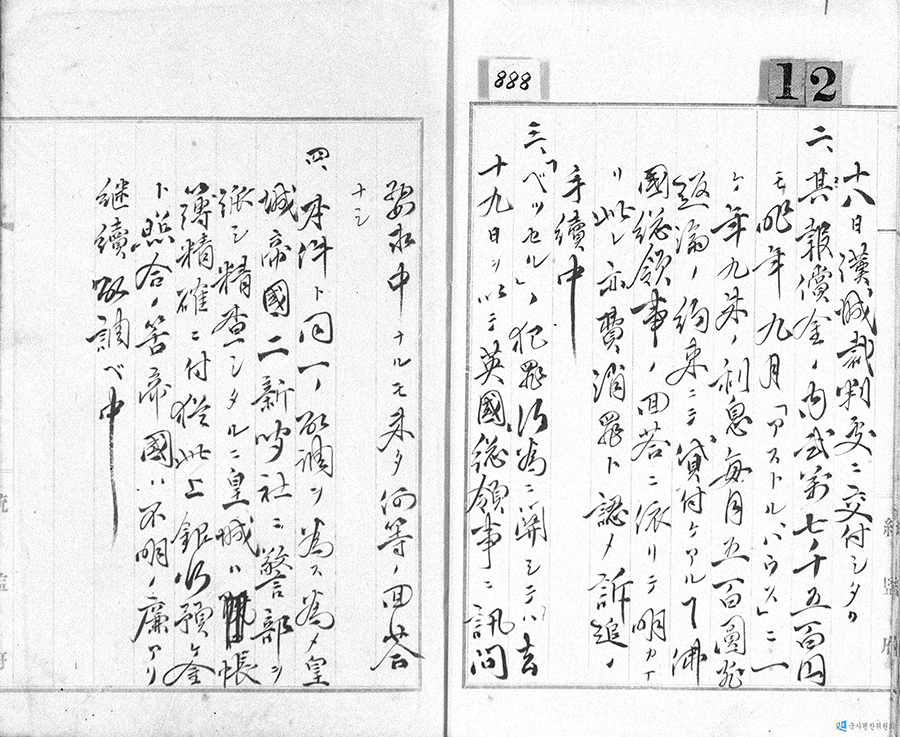 888
12
十八日漢城裁判所ニ交付シタリ
二、其報償金ノ内弐万七千五百円
モ昨年九月「アストルハウス」ニ一
ケ年九朱ノ利息毎月五百圓宛
返済ノ約束ニテ貸付ケアルヿ佛
國総領事ノ回答ニ依リテ明カナ
リ此レ亦費消罪ト認メ訴追ノ
手續中
三、「ベツセル」ノ犯罪行為ニ関シテハ去
十九日ヲ以テ英國総領事ニ訊問
要求中ナルモ未タ何等ノ回答
ナシ
四、本件ト同一ノ取調ヲ為ス為メ皇
城帝國二新聞社ニ警部ヲ
派シ精査シタルニ皇城ハ帳
簿精確ニ付従此上銀行預ケ金
ト照合ノ筈帝國ハ不明ノ廉アリ
継續取調ベ中
統監府
統監府
국사편찬위원회